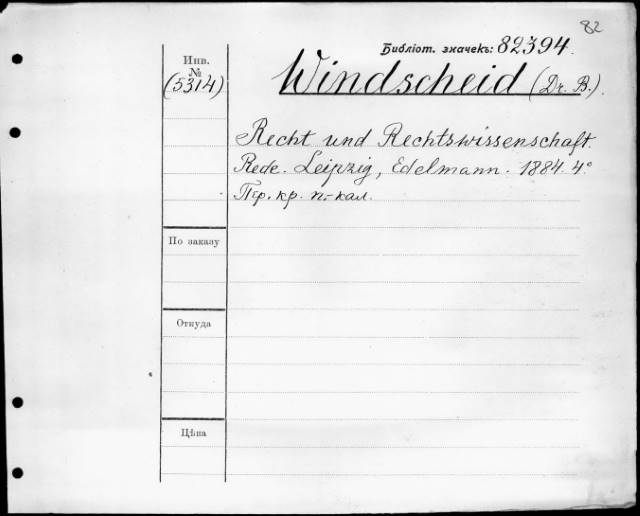 82
Библіот. значекъ: 82394.
Инв.
№
(5314)
Windscheid (Dr. B.).
Recht und Rechtswissenschaft.
Rede. Leipzig, Edelmann. 1884. 4°
Пер. кр. п.-кал.
По заказу
Откуда
Цѣна